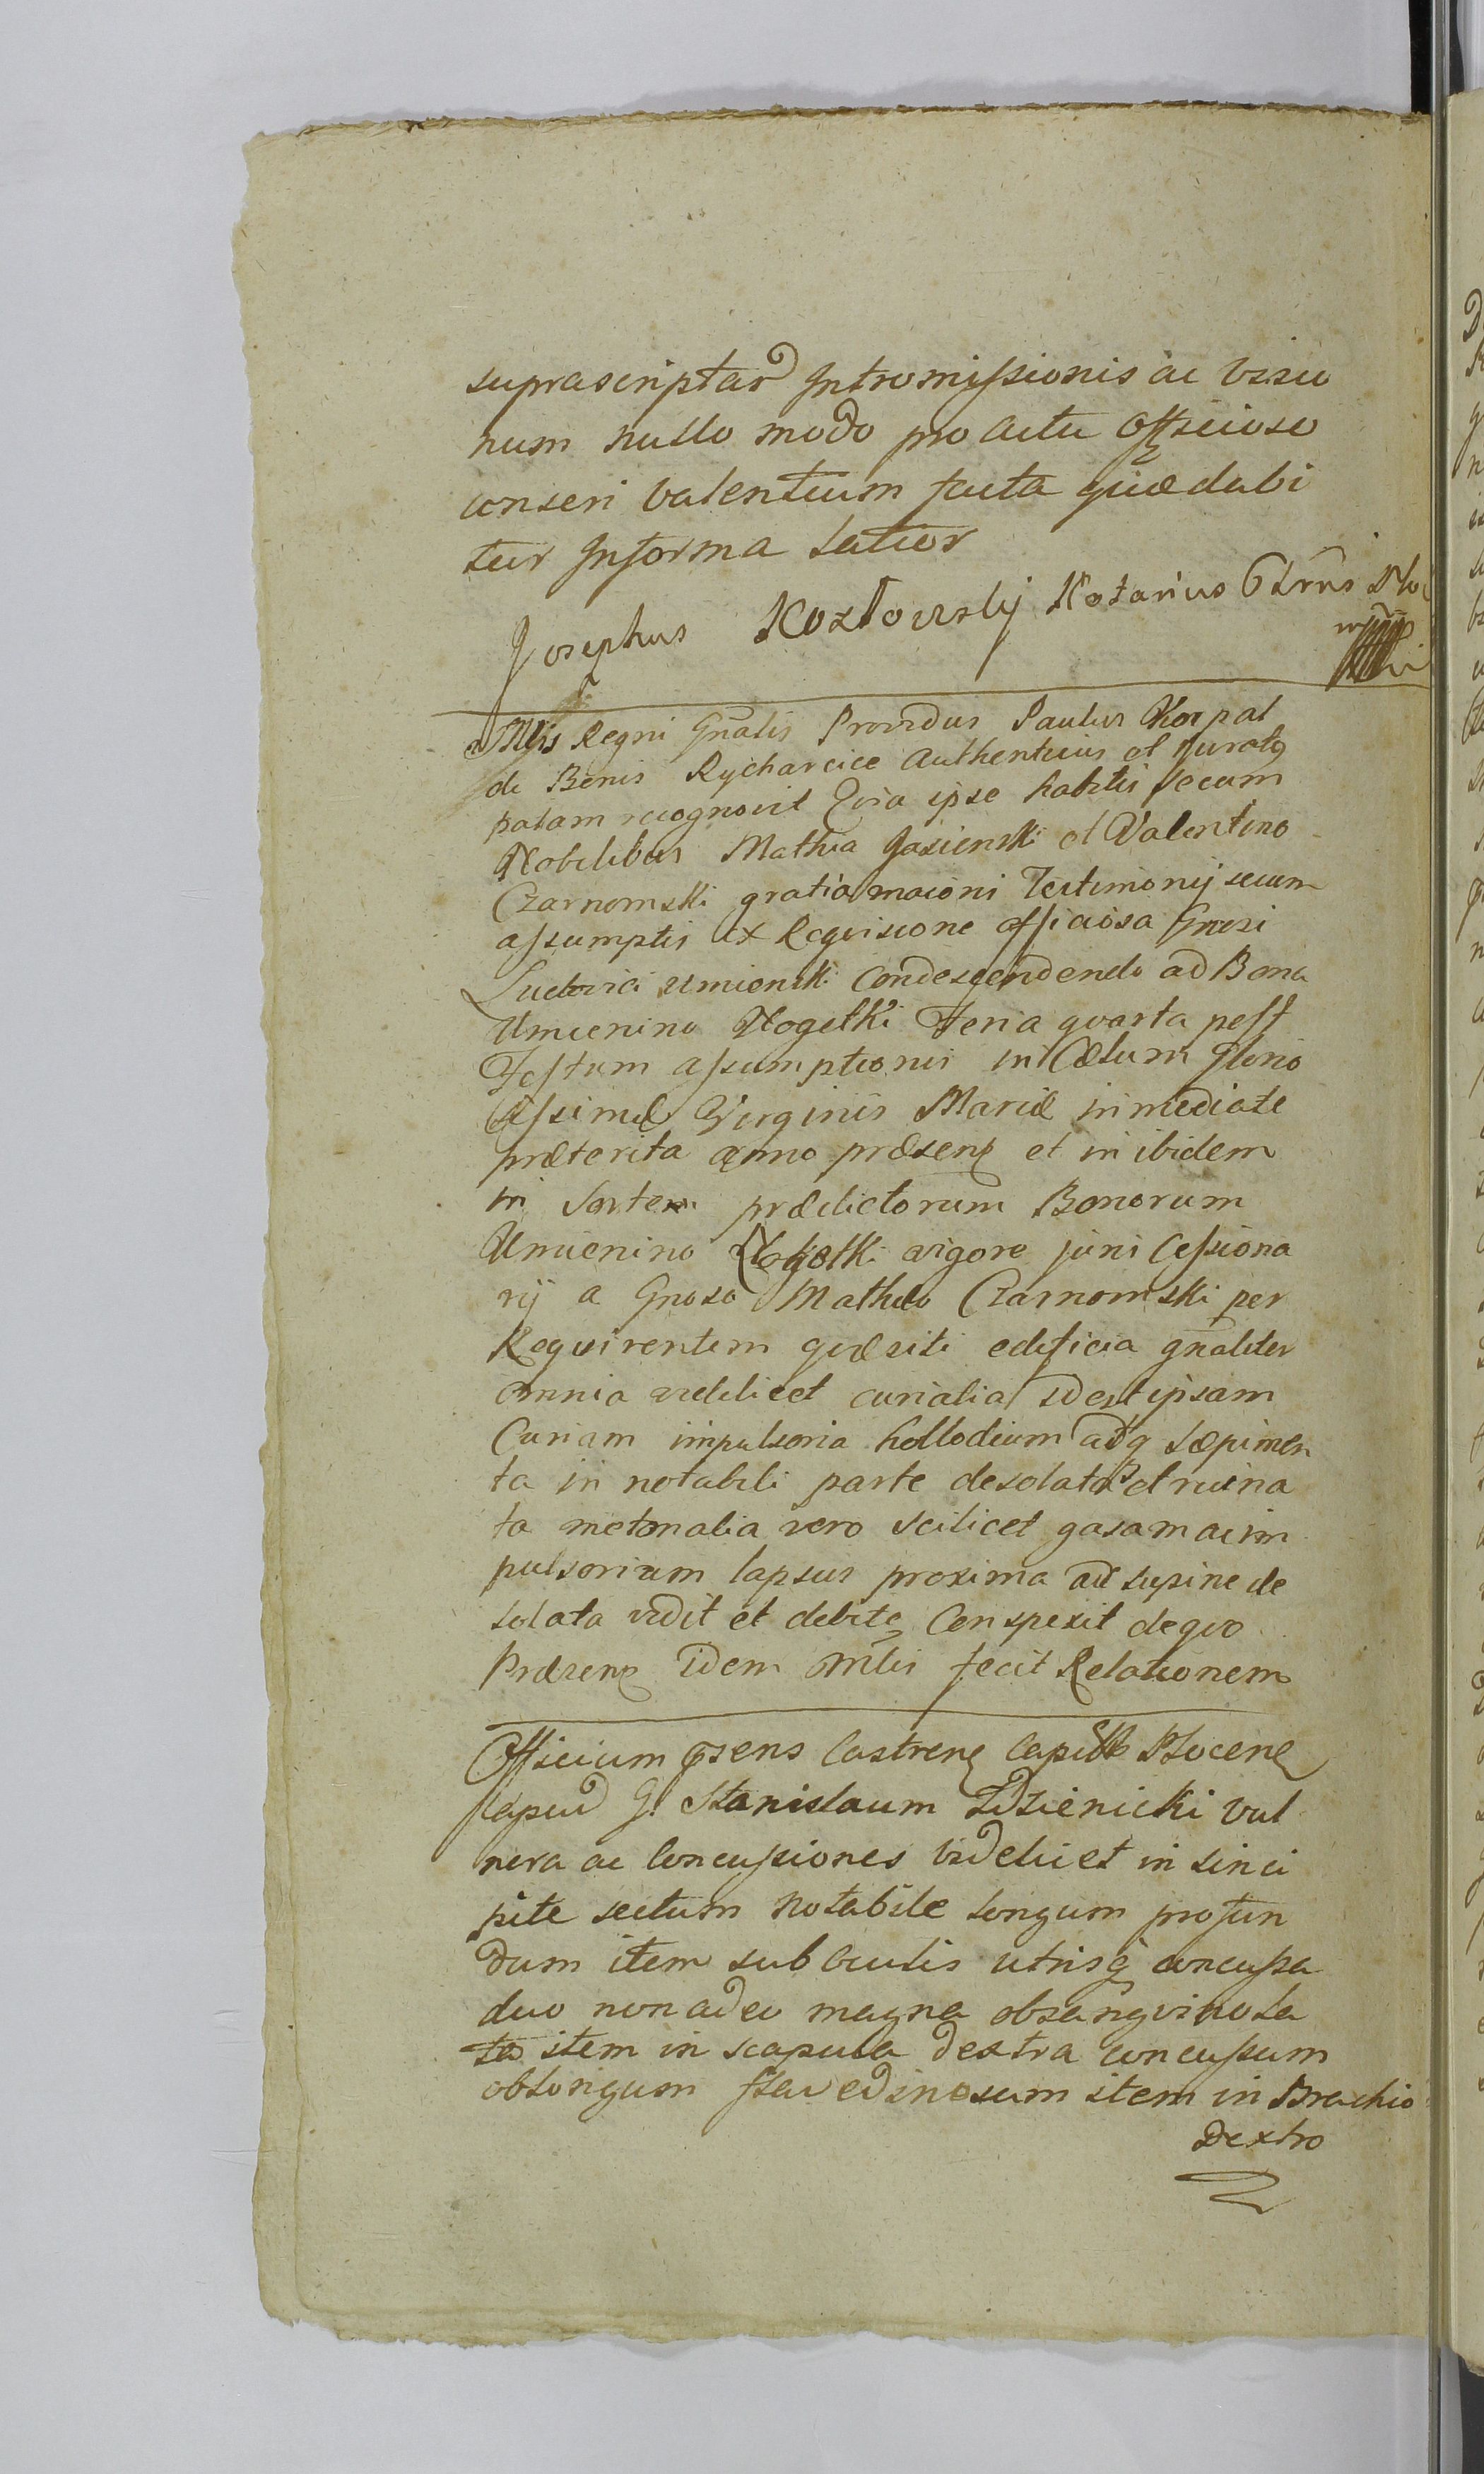 suprascriptar Intromissionis ac visio
num nullo modo pro actu officioso
censeri valentium facta quæ dabi
tur Informa latior
Josephus Kozłowskÿ Notarius Cstrns Plo
Mlis Regni Gnalis Providus Paulus Korpal
de Bonis Rycharcice Authenticus et Juratq
palam recognovit Quia ipse habitis secum
Nobilibus Mathia Gasienski et Valentino
Czarnomski gratia maioris Testimonij secum
assumptis ex Requisicione officiosa Gnosi
Ludovici Umienski Condescendendo ad Bona
Umienino Rogotki Feria quarta post
Festum assumptionis in Cœlum Glorio
sissimæ Virginis Mariæ immediate
præterita anno præsenz et in ibidem
in sortem prædictorum Bonorum
Umienino Rogotki vigore juris Cessiona
rij a Gnoso Mathæo Czarnomski per
Requirentem quæsiti edificia gnaliter
omnia videlicet curialia idest ipsam
Curiam impulsoria hollodium adq sæpimen
ta in notabili parte desolata et ruina
ta metonalia vero scilicet gasam ac im
pulsorium lapsui proxima ac supine de
solata vidit et debite Conspexit de quo
Præsenz idem Mlis fecit Relationem
Officium psens Castrenz Capitle Plocenz
apud G. Stanislaum Zdzienicki vul
nera ac Concussiones videlicet in sinci
pite sectum notabile longum profun
dum item sub oculis utrisq concussa
duo non adeo magna obsangvinola
ta item in scapula dextra concussum
oblongum flavedinosum item in Brachio
Dextro